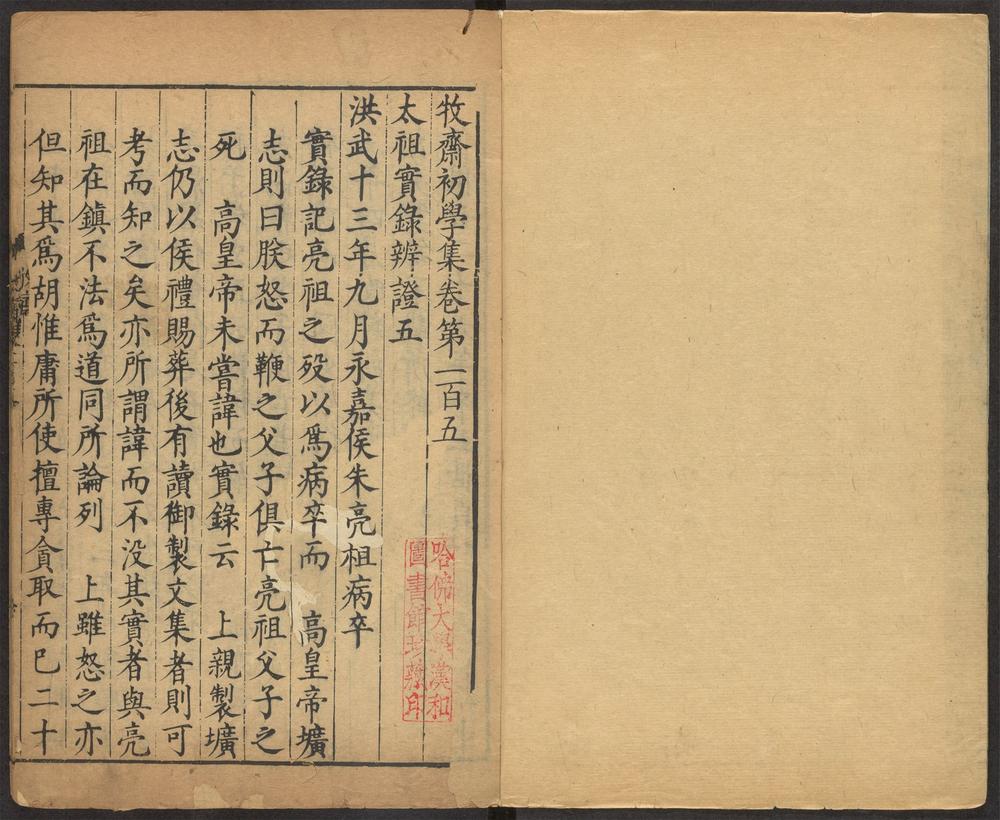 牧齋初學集卷第一百五
太祖實錄辨證五
洪武十三年九月永嘉侯朱亮祖病卒
實錄記亮祖之歿以爲病卒而　高皇帝壙
志則曰朕怒而鞭之父子俱亡亮祖父子之
死　高皇帝未嘗諱也實錄云　上親製壙
志仍以侯禮賜葬後有讀御製文集者則可
考而知之矣亦所謂諱而不没其實者與亮
祖在鎭不法爲道同所論列　上雖怒之亦
但知其爲胡惟庸所使擅專貪取而已二十
哈佛大學漢和
圖書館珍藏印